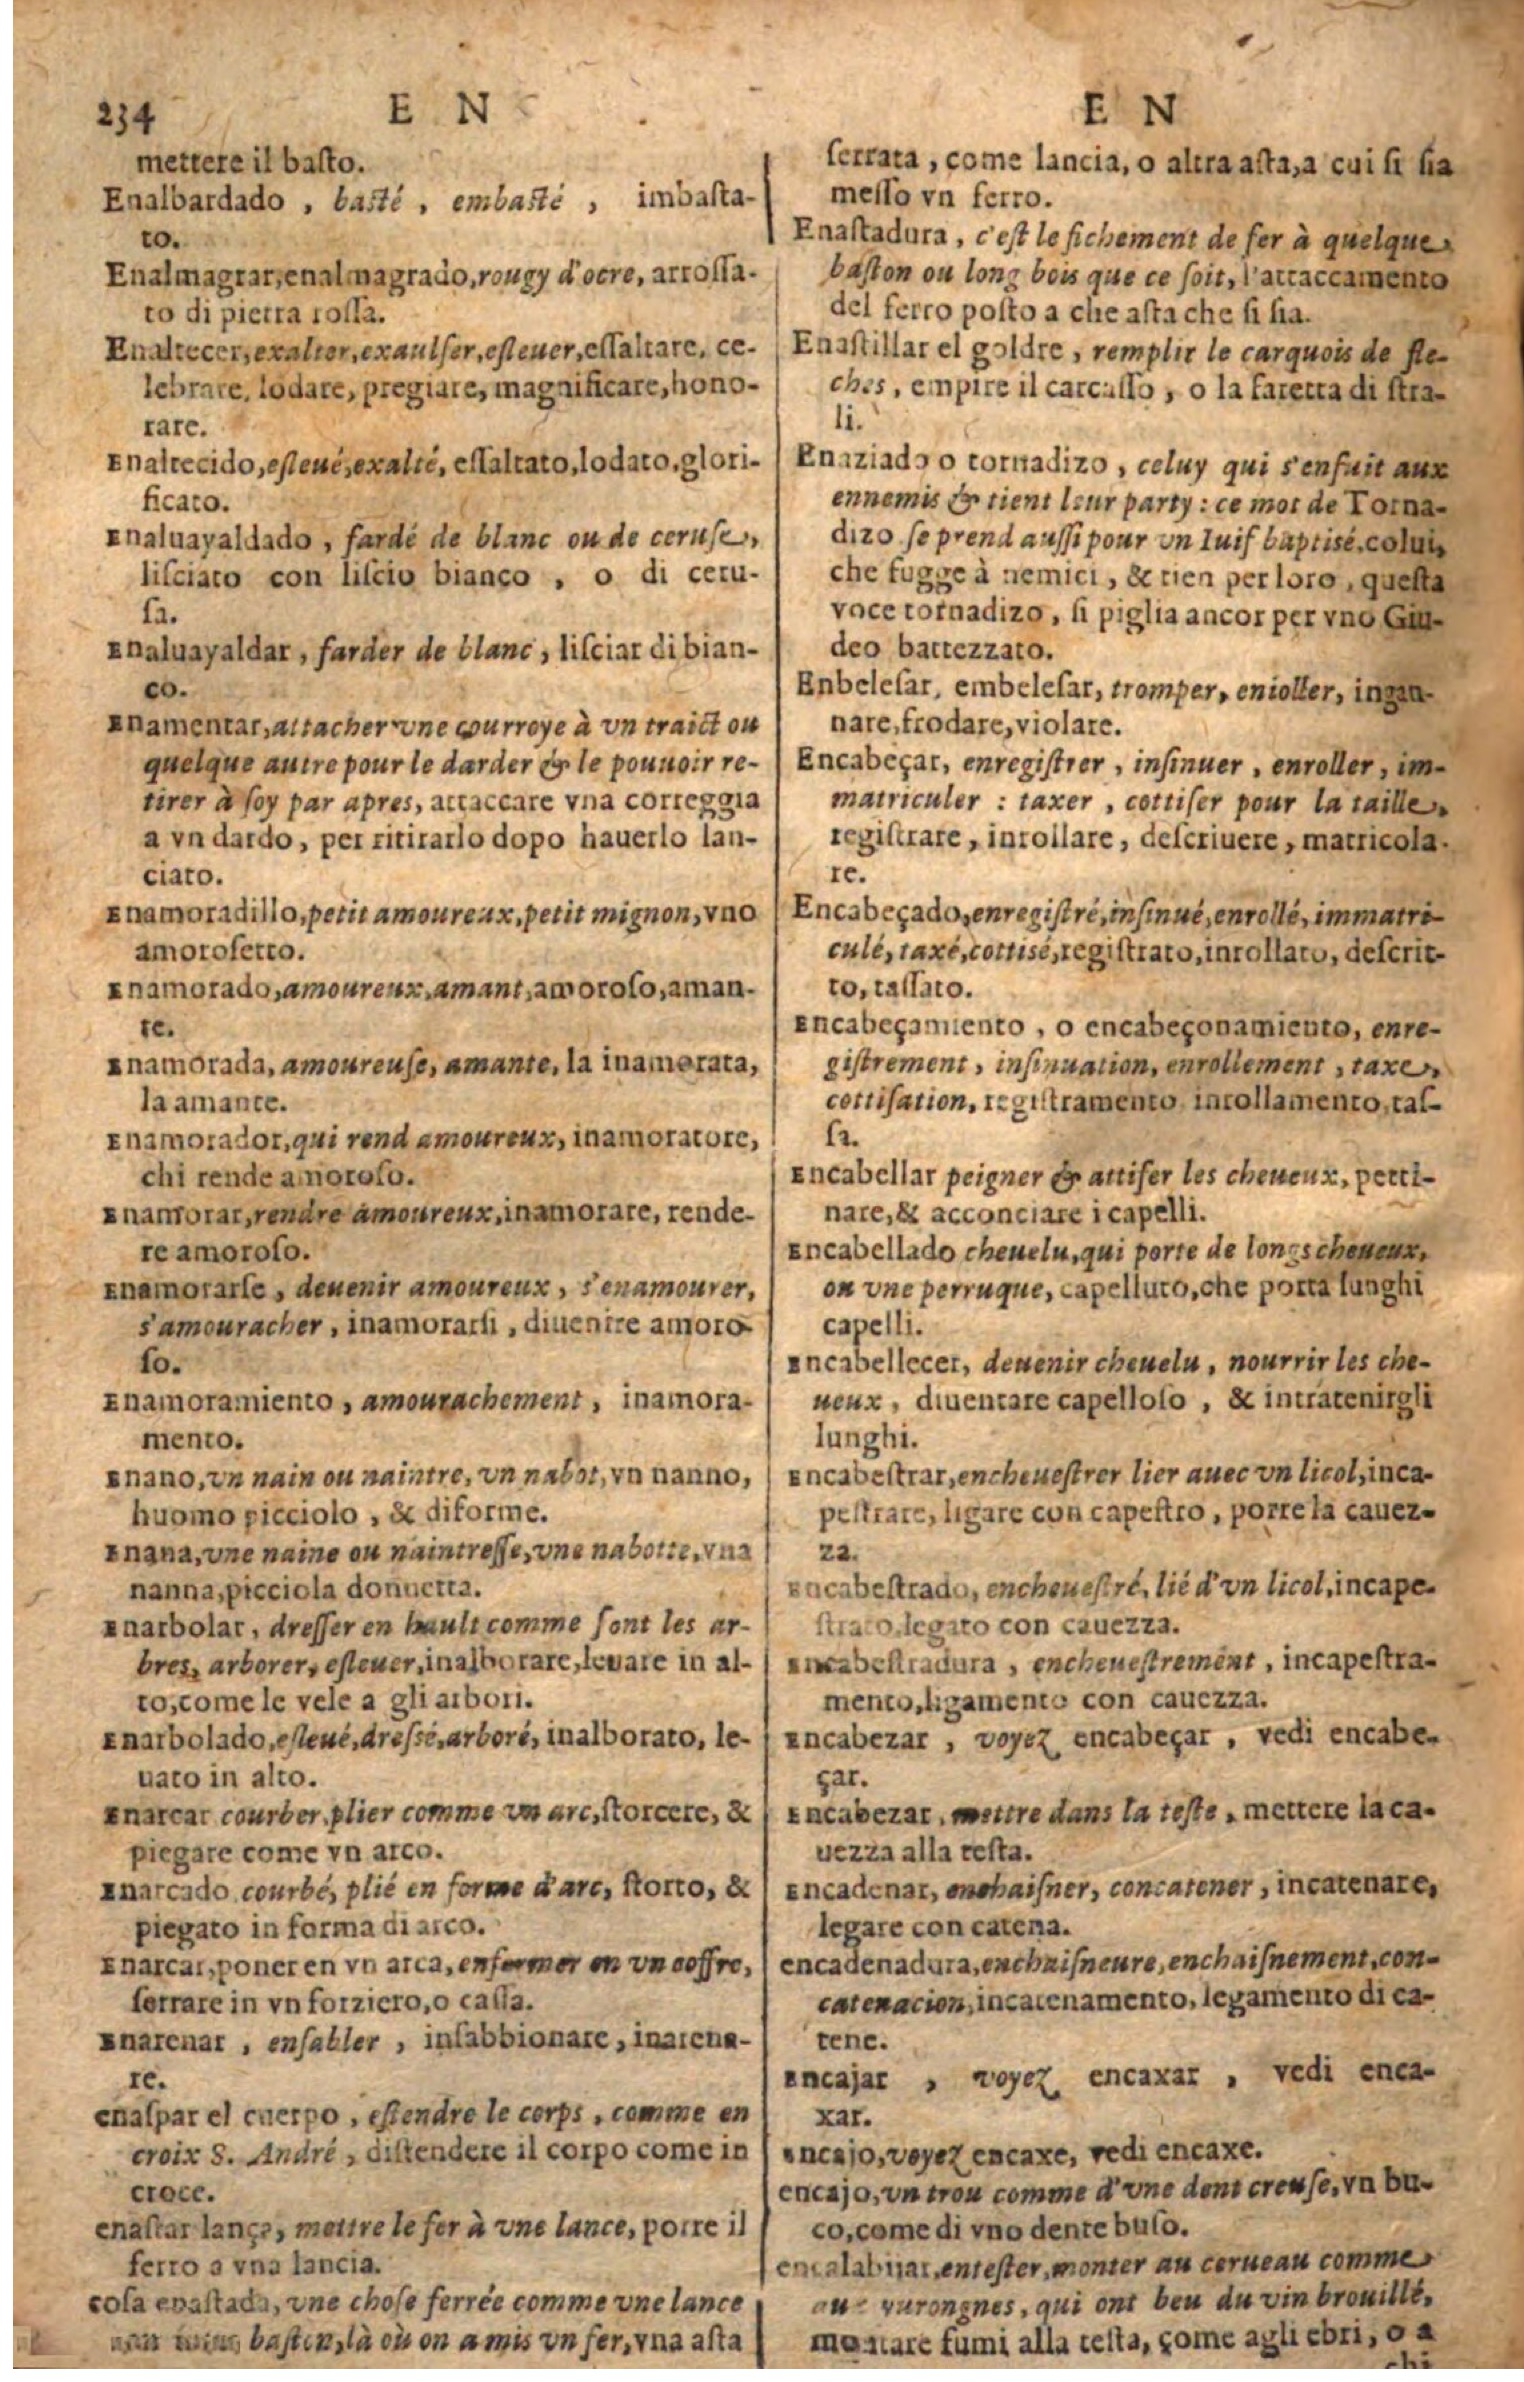 234
E N
mettere il basto.
Enalbardado , basté , embasté , imbasta-
to.
Enalmagrar, enalmagrado, rougy d'ocre, arrossa-
to di pietra rossa.
Enaltecer, exalter, exaulser, esleuer, essaltare, ce-
lebrare, lodare, pregiare, magnificare, hono-
rare.
Enaltecido, esleué, exalté, essaltato, lodato, glori-
ficato.
Enaluayaldado , fardé de blanc ou de ceruse,
lisciato con liscio bianco , o di ceru-
sa.
Enaluayaldar , farder de blanc , lisciar di bian-
co.
Enamentar, attacher vne courroye à vn traict ou
quelque autre pour le darder & le pouuoir re-
tirer à soy par apres, attaccare vna correggia
a vn dardo, per ritirarlo dopo hauerlo lan-
ciato.
Enamoradillo, petit amoureux, petit mignon, vno
amorosetto.
Enamorado, amoureux, amant, amoroso, aman-
te.
Enamorada, amoureuse, amante, la inamorata,
la amante.
Enamorador, qui rend amoureux, inamoratore,
chi rende amoroso.
Enamorar, rendre amoureux, inamorare, rende-
re amoroso.
Enamorarse , deuenir amoureux , s'enamourer,
s'amouracher , inamorarsi , diuenire amoro-
so.
Enamoramiento , amourachement , inamora-
mento.
Enano, vn nain ou naintre, vn nabot, vn nanno,
huomo picciolo , & diforme.
Enana, vne naine ou naintresse, vne nabotte, vna
nanna, picciola donnetta.
Enarbolar , dresser en hault comme sont les ar-
bres, arborer, esleuer, inalborare, leuare in al-
to, come le vele a gli arbori.
Enarbolado, esleué, dressé, arboré, inalborato, le-
uato in alto.
Enarcar courber, plier comme vn arc, storcere, &
piegare come vn arco.
Enarcado courbé, plié en forme d'arc, storto, &
piegato in forma di arco.
Enarcar, poner en vn arca, enfermer en vn coffre,
serrare in vn forziero, o cassa.
Enarenar , ensabler , insabbionare, inarena-
re.
enaspar el cuerpo , estendre le corps , comme en
croix S. André , distendere il corpo come in
croce.
enastar lança, mettre le fer à vne lance, porre il
ferro a vna lancia.
cosa enastada, vne chose ferrée comme vne lance
baston, là où on a mis vn fer, vna asta
E N
serrata , come lancia, o altra asta, a cui si sia
messo vn ferro.
Enastadura , c'est le fichement de fer à quelque
baston ou long bois que ce soit, l'attaccamento
del ferro posto a che asta che si sia.
Enastillar el goldre , remplir le carquois de fle-
ches , empire il carcasso , o la faretta di stra-
li.
Enaziado o tornadizo , celuy qui s'enfuit aux
ennemis & tient leur party : ce mot de Torna-
dizo se prend aussi pour vn Iuif baptisé, colui,
che fugge à nemici , & tien per loro , questa
voce tornadizo , si piglia ancor per vno Giu-
deo battezzato.
Enbelesar, embelesar, tromper, enioller, ingan-
nare, frodare, violare.
Encabeçar, enregistrer , insinuer , enroller , im-
matriculer : taxer , cottiser pour la taille,
registrare , inrollare , descriuere , matricola-
re.
Encabeçado, enregistré, insinué, enrollé, immatri-
culé, taxé, cottisé, registrato, inrollato, descrit-
to, tassato.
Encabeçamiento , o encabeçonamiento, enre-
gistrement , insinuation, enrollement , taxe,
cottisation, registramento inrollamento, tas-
sa.
Encabellar peigner & attifer les cheueux, petti-
nare, & acconciare i capelli.
Encabellado cheuelu, qui porte de longs cheueux,
ou vne perruque, capelluto, che porta lunghi
capelli.
Encabellecer, deuenir cheuelu , nourrir les che-
ueux , diuentare capelloso , & intratenirgli
lunghi.
Encabestrar, encheuestrer lier auec vn licol, inca-
pestrare, ligare con capestro , porre la cauez-
za.
Encabestrado, encheuestré, lié d'vn licol, incape-
strato, legato con cauezza.
Encabestradura , encheuestrement , incapestra-
mento, ligamento con cauezza.
Encabezar , voyez encabeçar , vedi encabe-
çar.
Encabezar , mettre dans la teste , mettere la ca-
uezza alla testa.
Encadenar, enchaisner, concatener , incatenare,
legare con catena.
encadenadura, enchaisneure, enchaisnement, con-
catenacion, incatenamento, legamento di ca-
tene.
Encajar , voyez encaxar , vedi enca-
xar.
Encajo, voyez encaxe, vedi encaxe.
encajo, vn trou comme d'vne dent creuse, vn bu-
co, come di vno dente buso.
encalabriar, entester, monter au cerueau comme
yurongnes, qui ont beu du vin brouillé,
montare fumi alla testa, come agli ebri, o a
chi